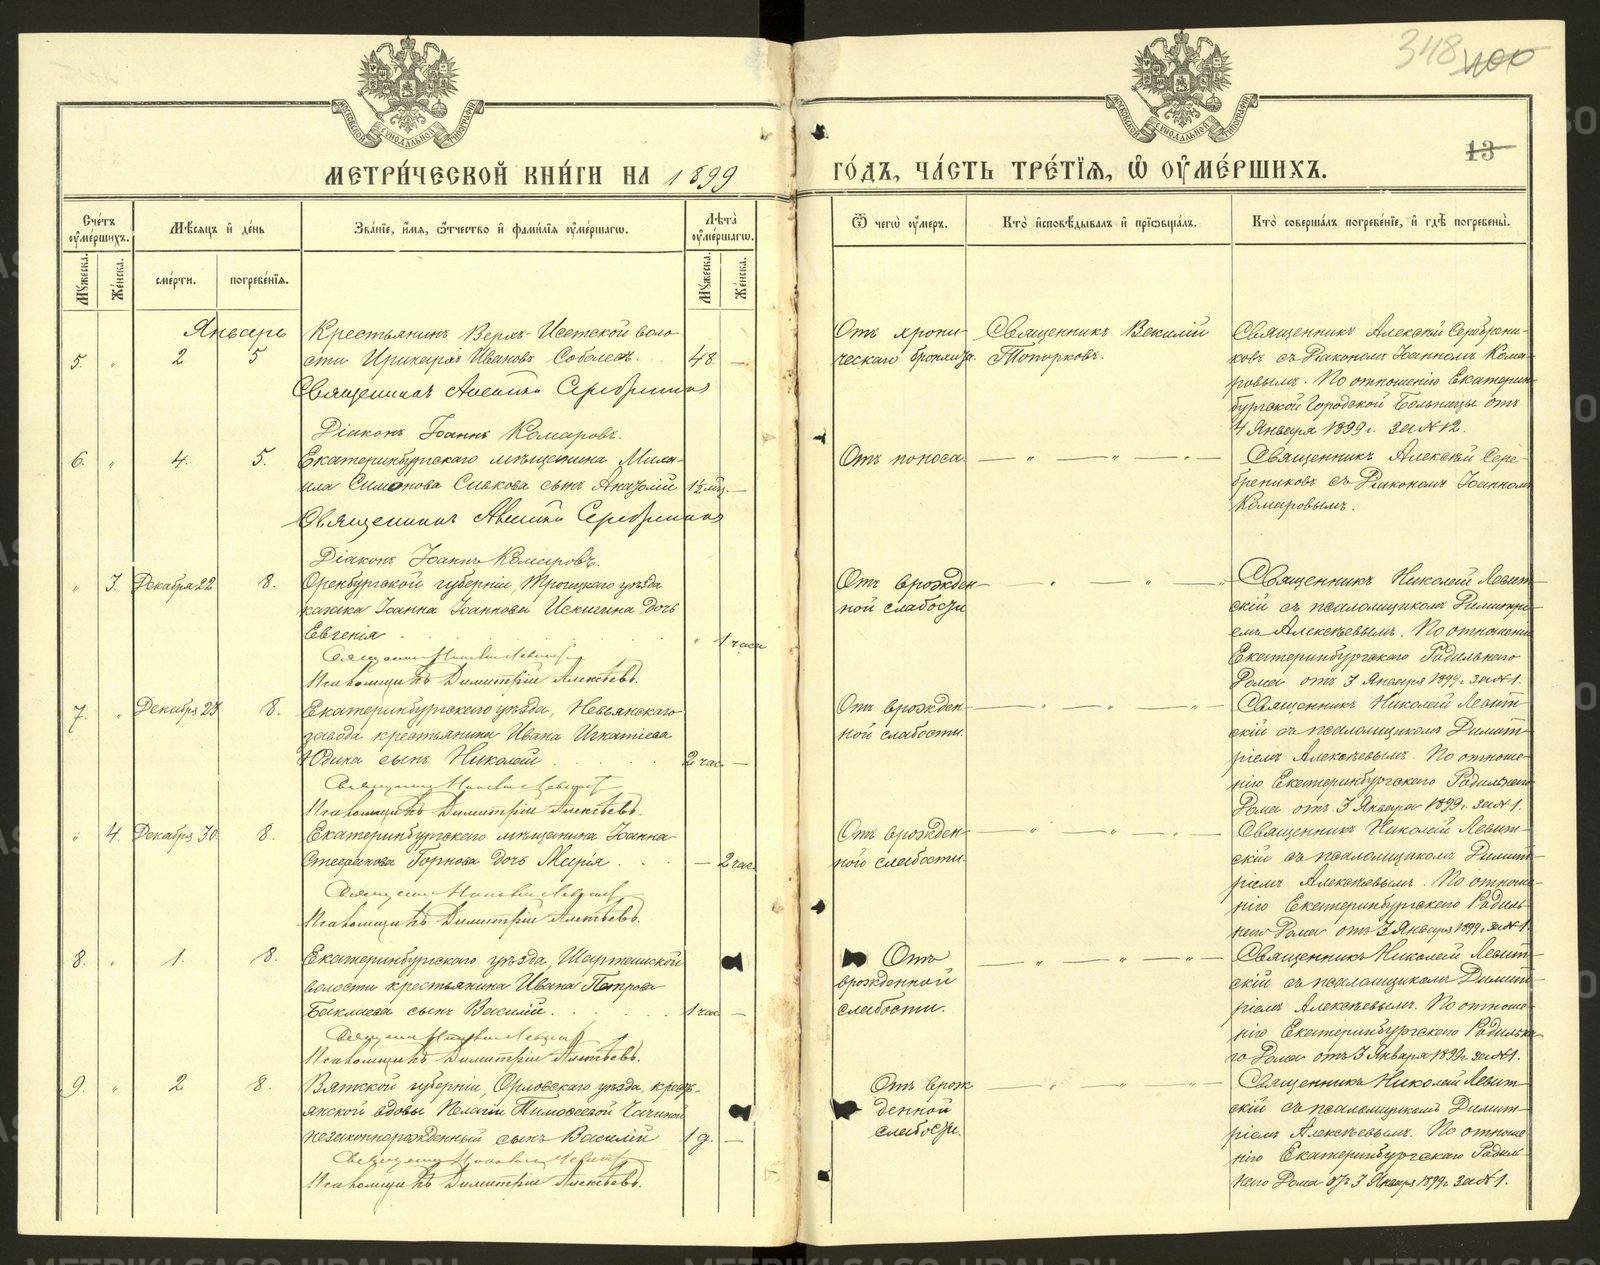 348 400
13
МЕТРИ́ЧЕСКОЙ КНИ́ГИ НА 1899
ГО́ДЪ, ЧА́СТЬ ТРЕ́ТІѦ, Ѡ҆ ОУ҆МЕ́РШИХЪ.
Сче́тъ оу҆ме́ршихъ.
Мꙋжеска.
Же́нска.
Мѣ́сѧцъ и҆ де́нь
сме́рти.
погребе́нїѧ.
Зва́нїе, и҆́мѧ, ѻ҆́тчество и҆ фами́лїѧ оу҆ме́ршагѡ.
Лѣ́та оу҆ме́ршагѡ.
Мꙋжеска.
Же́нска.
Ѿ чегѡ̀ оу҆́меръ.
Кто̀ и҆сповѣ́дывалъ и҆ прїѡбща́лъ.
Кто̀ соверша́лъ погребе́нїе, и҆ гдѣ̀ погребены̀.
Январь
5. „ 2 5
Крестьянинъ Верхъ-Исетской воло-
сти Иринархъ Ивановъ Соболевъ. 48. —
Священникъ Алексѣй Серебренниковъ
Діаконъ Іоаннъ Комаровъ.
Отъ хрони-
ческаго бронхита.
Священникъ Василій
Топорковъ.
Священникъ Алексѣй Серебрени-
ковъ съ Діакономъ Іоанномъ Кома-
ровымъ. По отношенію Екатерин-
бургской Городской Больницы отъ
4 Января 1899 г. за № 12.
6. „ 4. 5.
Екатеринбургскаго мѣщанина Миха-
ила Симонова Сивкова сынъ Анатолій 1½ мѣс. —
Священникъ Алексѣй Серебренниковъ
Діаконъ Іоаннъ Комаровъ.
Отъ поноса. — „ — „ — „ —
Священникъ Алексѣй Сере-
бренниковъ съ Діакономъ Іоанномъ
Комаровымъ.
„ 3. Декабря 22 8.
Оренбургской губерніи, Троицкаго уѣзда
казака Іоанна Іоаннова дочь
Евгенія „ 1 часа
Священникъ Николай Левитскій
Псаломщикъ Димитрій Алексѣевъ.
Отъ врожден-
ной слабости
Священникъ Николай Левит-
скій съ псаломщикомъ Димитрі-
емъ Алексѣевымъ. По отношенію
Екатеринбургскаго Родильнаго
Дома отъ 3 Января 1899 г. за № 1.
7. „ Декабря 23 8.
Екатеринбургскаго уѣзда, Невьянскаго
завода крестьянина Ивана Игнатіева
Юдина сынъ Николай 2 час. —
Священникъ Николай Левитскій
Псаломщикъ Димитрій Алексѣевъ.
Отъ врожден-
ной слабости.
Священникъ Николай Левит-
скій съ псаломщикомъ Димит-
ріемъ Алексѣевымъ. По отноше-
нію Екатеринбургскаго Родильнаго
Дома отъ 3 Января 1899 г. за № 1.
„ 4. Декабря 30 8.
Екатеринбургскаго мѣщанина Іоанна
Стефанова Горнова дочь Марія — 2 час.
Священникъ Николай Левитскій
Псаломщикъ Димитрій Алексѣевъ.
Отъ врожден-
ной слабости.
Священникъ Николай Левит-
скій съ псаломщикомъ Димит-
ріемъ Алексѣевымъ. По отноше-
нію Екатеринбургскаго Родиль-
наго Дома отъ 3 Января 1899 г. за № 1.
8. „ 1. 8.
Екатеринбургскаго уѣзда, Шарташской
волости крестьянина Ивана Петрова
Баклаева сынъ Василій 1 час —
Священникъ Николай Левитскій
Псаломщикъ Димитрій Алексѣевъ.
Отъ
врожденной
слабости.
Священникъ Николай Левит-
скій съ псаломщикомъ Димит-
ріемъ Алексѣевымъ. По отноше-
нію Екатеринбургскаго Родильна-
го Дома отъ 3 Января 1899 г. за № 1.
9. „ 2 8.
Вятской губерніи, Орловскаго уѣзда, кресть-
янской вдовы Пелагіи Тимоѳеевой
незаконнорожденный сынъ Василій 1 д. —
Священникъ Николай Левитскій
Псаломщикъ Димитрій Алексѣевъ.
Отъ врож-
денной
слабости.
Священникъ Николай Левит-
скій съ псаломщикомъ Димит-
ріемъ Алексѣевымъ. По отноше-
нію Екатеринбургскаго Родиль-
наго Дома отъ 3 Января 1899 г. за № 1.